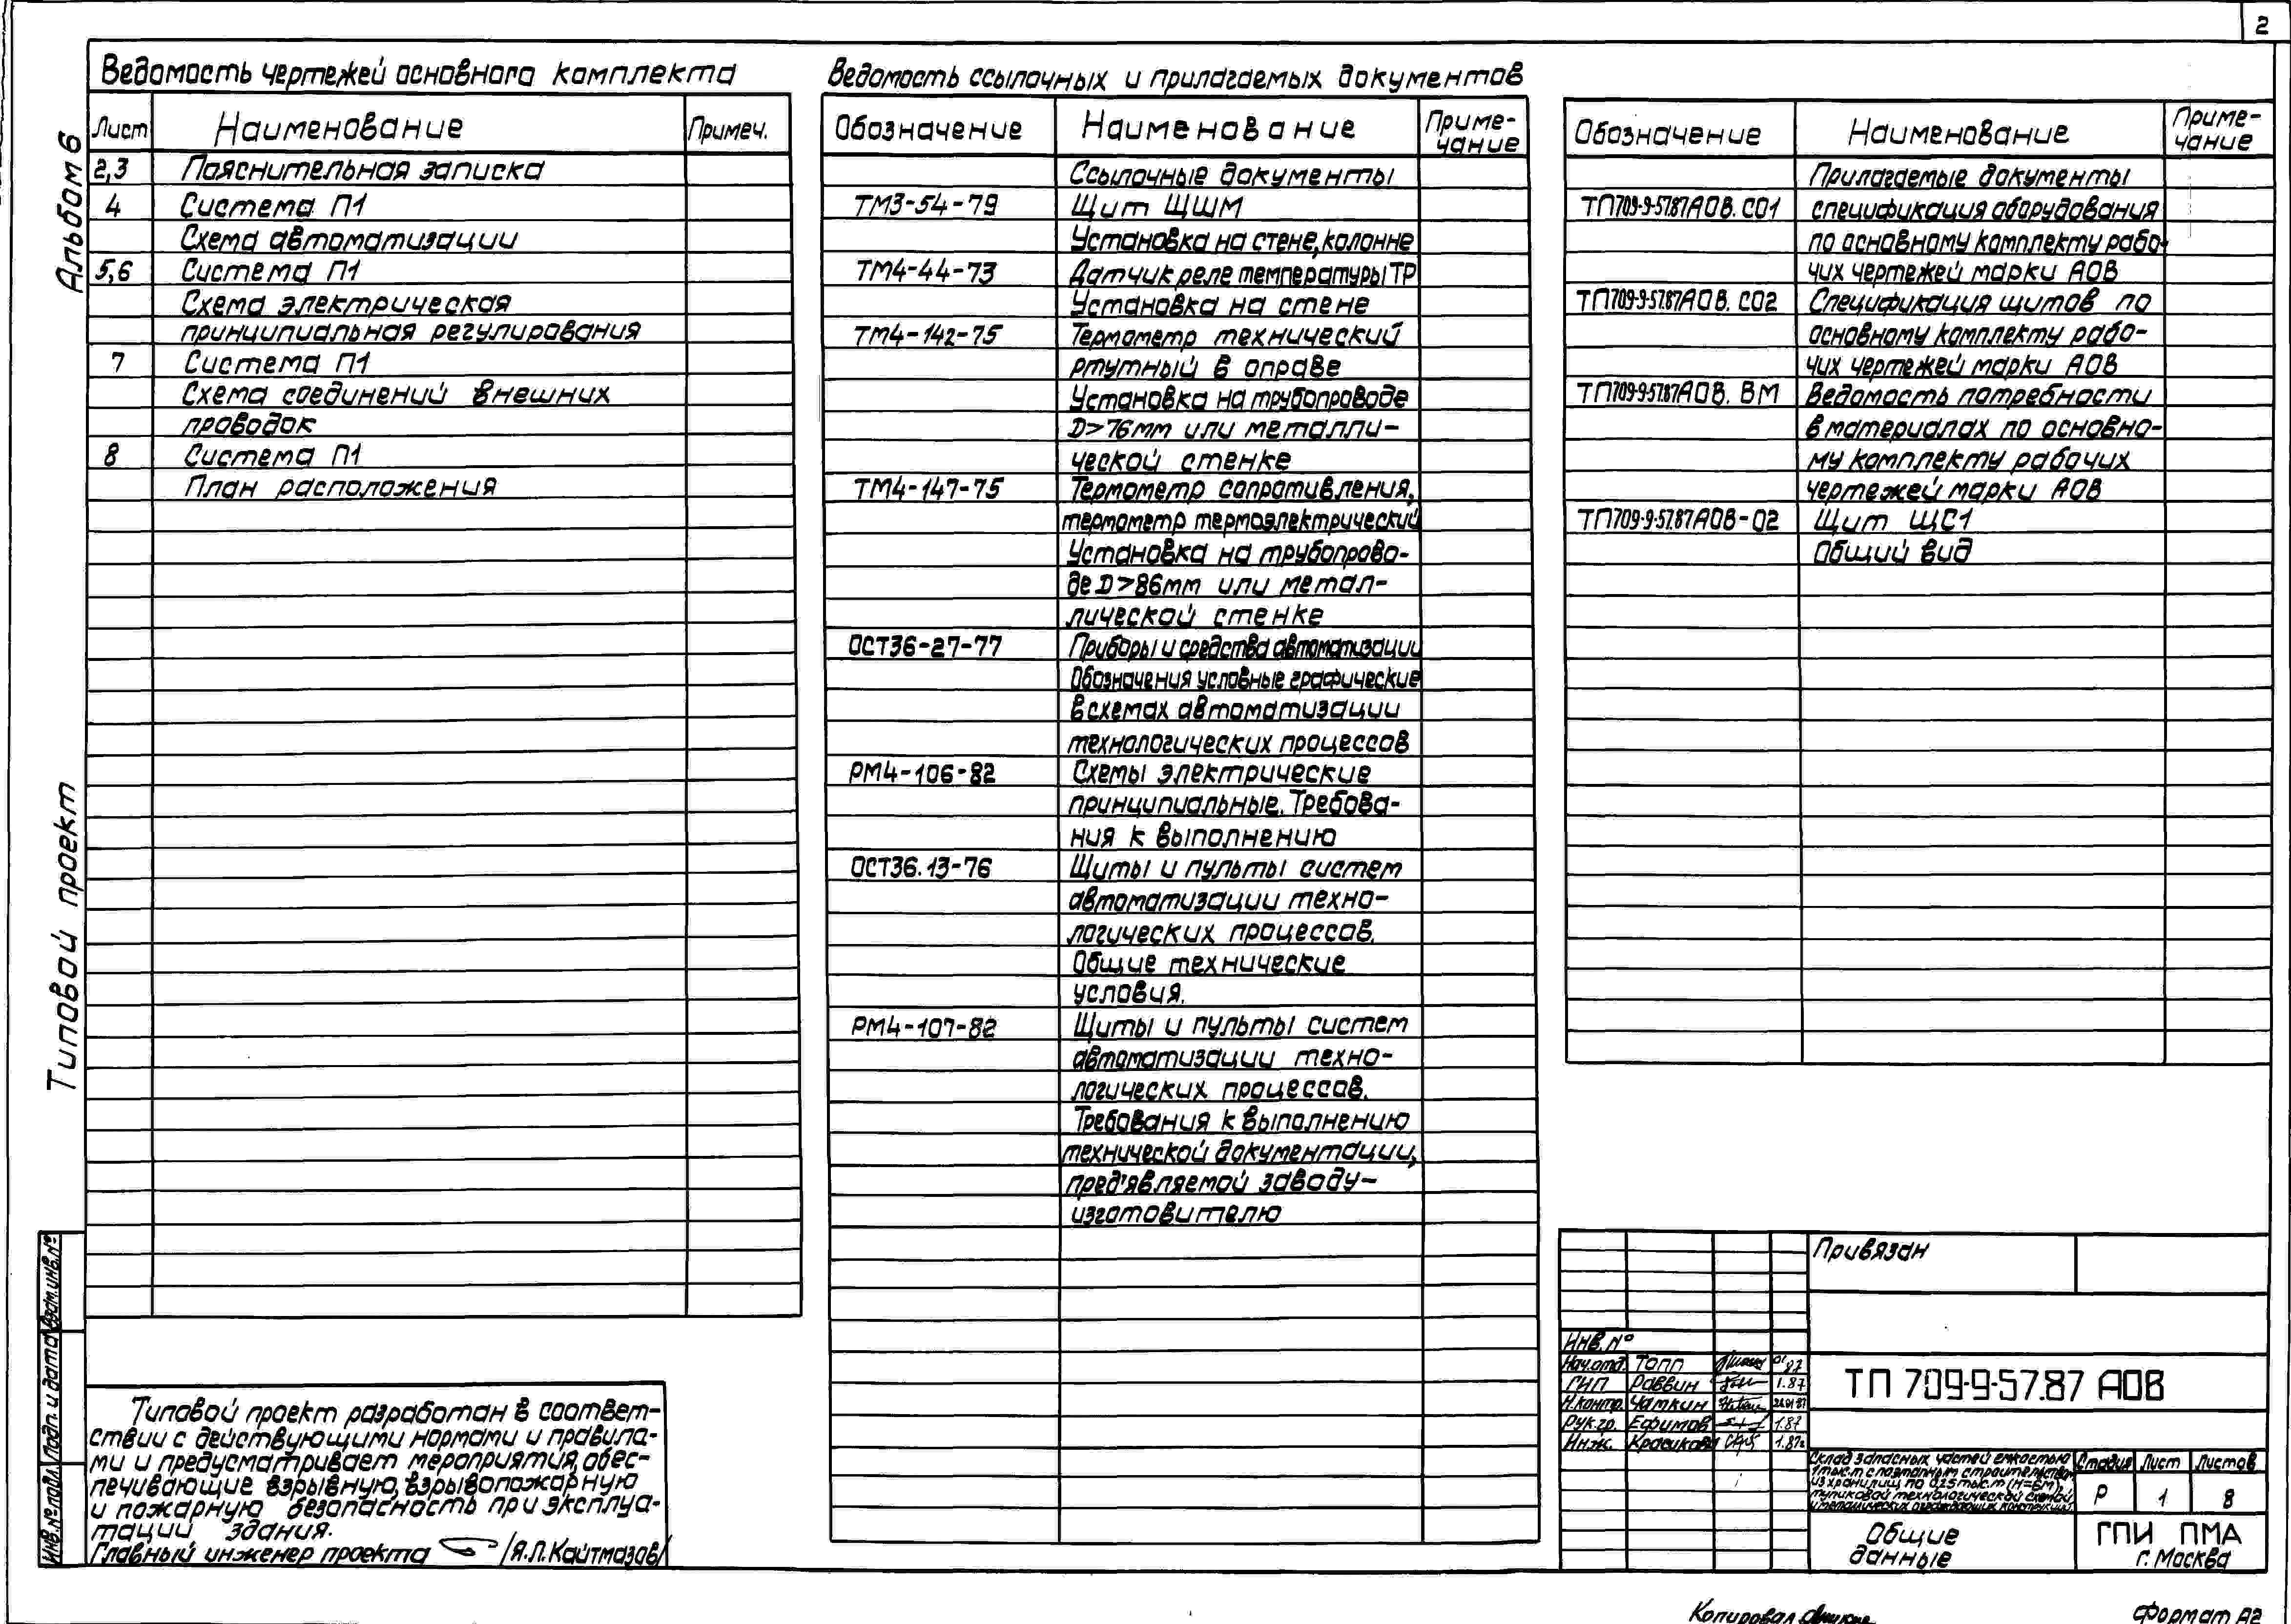 2
Альбом 6
Типовой проект
Ведомость чертежей основного комплекта
Лист Наименование Примеч.
2,3 Пояснительная записка
4 Система П1
Схема автоматизации
5,6 Система П1
Схема электрическая
принципиальная регулирования
7 Система П1
Схема соединений внешних
проводок
8 Система П1
План расположения
Ведомость ссылочных и прилагаемых документов
Обозначение Наименование Приме-
чание
Ссылочные документы
ТМ3-54-79 Щит ЩШМ
Установка на стене, колонне
ТМ4-44-73 Датчик реле температуры ТР
Установка на стене
ТМ4-142-75 Термометр технический
ртутный в оправе
Установка на трубопроводе
D>76мм или металли-
ческой стенке
ТМ4-147-75 Термометр сопротивления,
термометр термоэлектрический
Установка на трубопрово-
де D>86мм или метал-
лической стенке
ОСТ36-27-77 Приборы и средства автоматизации
Обозначения условные графические
в схемах автоматизации
технологических процессов
РМ4-106-82 Схемы электрические
принципиальные. Требова-
ния к выполнению
ОСТ36.13-76 Щиты и пульты систем
автоматизации техно-
логических процессов.
Общие технические
условия.
РМ4-107-82 Щиты и пульты систем
автоматизации техно-
логических процессов.
Требования к выполнению
технической документации,
пред'являемой заводу-
изготовителю
Обозначение Наименование Приме-
чание
Прилагаемые документы
ТП709-9-57.87АОВ.СО1 спецификация оборудования
по основному комплекту рабо-
чих чертежей марки АОВ
ТП709-9-57.87АОВ.СО2 Спецификация щитов по
основному комплекту рабо-
чих чертежей марки АОВ
ТП709-9-57.87АОВ.ВМ Ведомость потребности
в материалах по основно-
му комплекту рабочих
чертежей марки АОВ
ТП709-9-57.87АОВ-02 Щит ЩС1
Общий вид
Типовой проект разработан в соответ-
ствии с действующими нормами и правила-
ми и предусматривает мероприятия, обес-
печивающие взрывную, взрывопожарную
и пожарную безопасность при эксплуа-
тации здания.
Главный инженер проекта /Я.Л.Кайтмазов/
Взам.инв.№
Подп. и дата
Инв.№ подл.
Привязан
Инв.№
Нач.отд. Топп 87
ГИП Раввин 1.87
Н.контр. Чамкин 26.01.87
Рук.гр. Ефимов 1.87
Инж. Красикова 1.87г
ТП 709-9-57.87 АОВ
Склад запасных частей емкостью
1 тыс.т с поэтапным строительством
из хранилищ по 0,25 тыс.т (Н=6м)
тупиковой технологической схемой
и металлических ограждающих конструкций
Стадия Лист Листов
Р 1 8
Общие
данные
ГПИ ПМА
г. Москва
Копировал
Формат А2